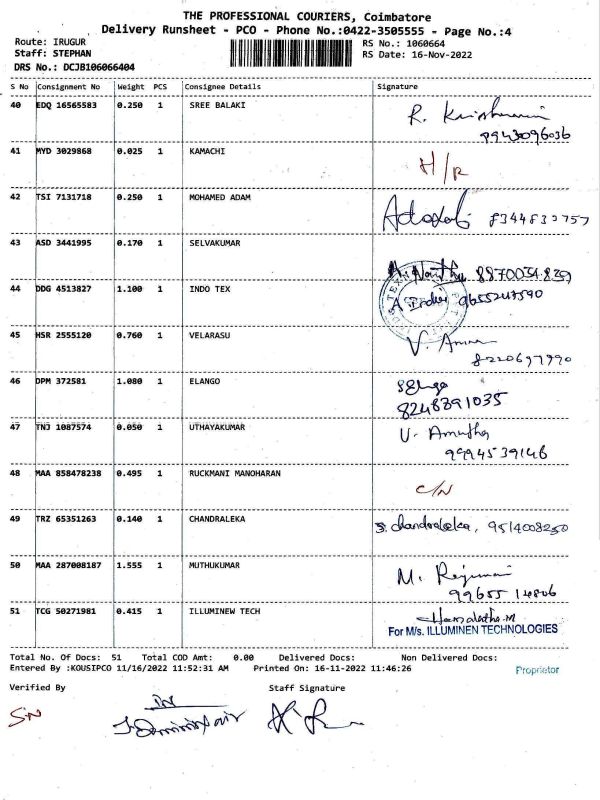 THE PROFESSIONAL COURIERS, Coimbatore
Delivery Runsheet - PCO - Phone No.:0422-3505555 - Page No.:4
Route: IRUGUR RS No.: 1060664
Staff: STEPHAN RS Date: 16-Nov-2022
DRS No.: DCJB106066404
S No Consignment No Weight PCS Consignee Details Signature
40 EDQ 16565583 0.250 1 SREE BALAKI R.
9943096036
41 MYD 3029868 0.025 1 KAMACHI H/R
42 TSI 7131718 0.250 1 MOHAMED ADAM
43 ASD 3441995 0.170 1 SELVAKUMAR
44 DDG 4513827 1.100 1 INDO TEX A
45 HSR 2555120 0.760 1 VELARASU V.
8220697990
46 DPM 372581 1.080 1 ELANGO
8248891035
47 TNJ 1087574 0.050 1 UTHAYAKUMAR U. Amutha
9994539146
48 MAA 858478238 0.495 1 RUCKMANI MANOHARAN C/N
49 TRZ 65351263 0.140 1 CHANDRALEKA S. chandraleka, 9514008250
50 MAA 287008187 1.555 1 MUTHUKUMAR M.
51 TCG 50271981 0.415 1 ILLUMINEW TECH
For M/s. ILLUMINEN TECHNOLOGIES
Total No. Of Docs: 51 Total COD Amt: 0.00 Delivered Docs: Non Delivered Docs:
Entered By :KOUSIPCO 11/16/2022 11:52:31 AM Printed On: 16-11-2022 11:46:26
Proprietor
Verified By Staff Signature